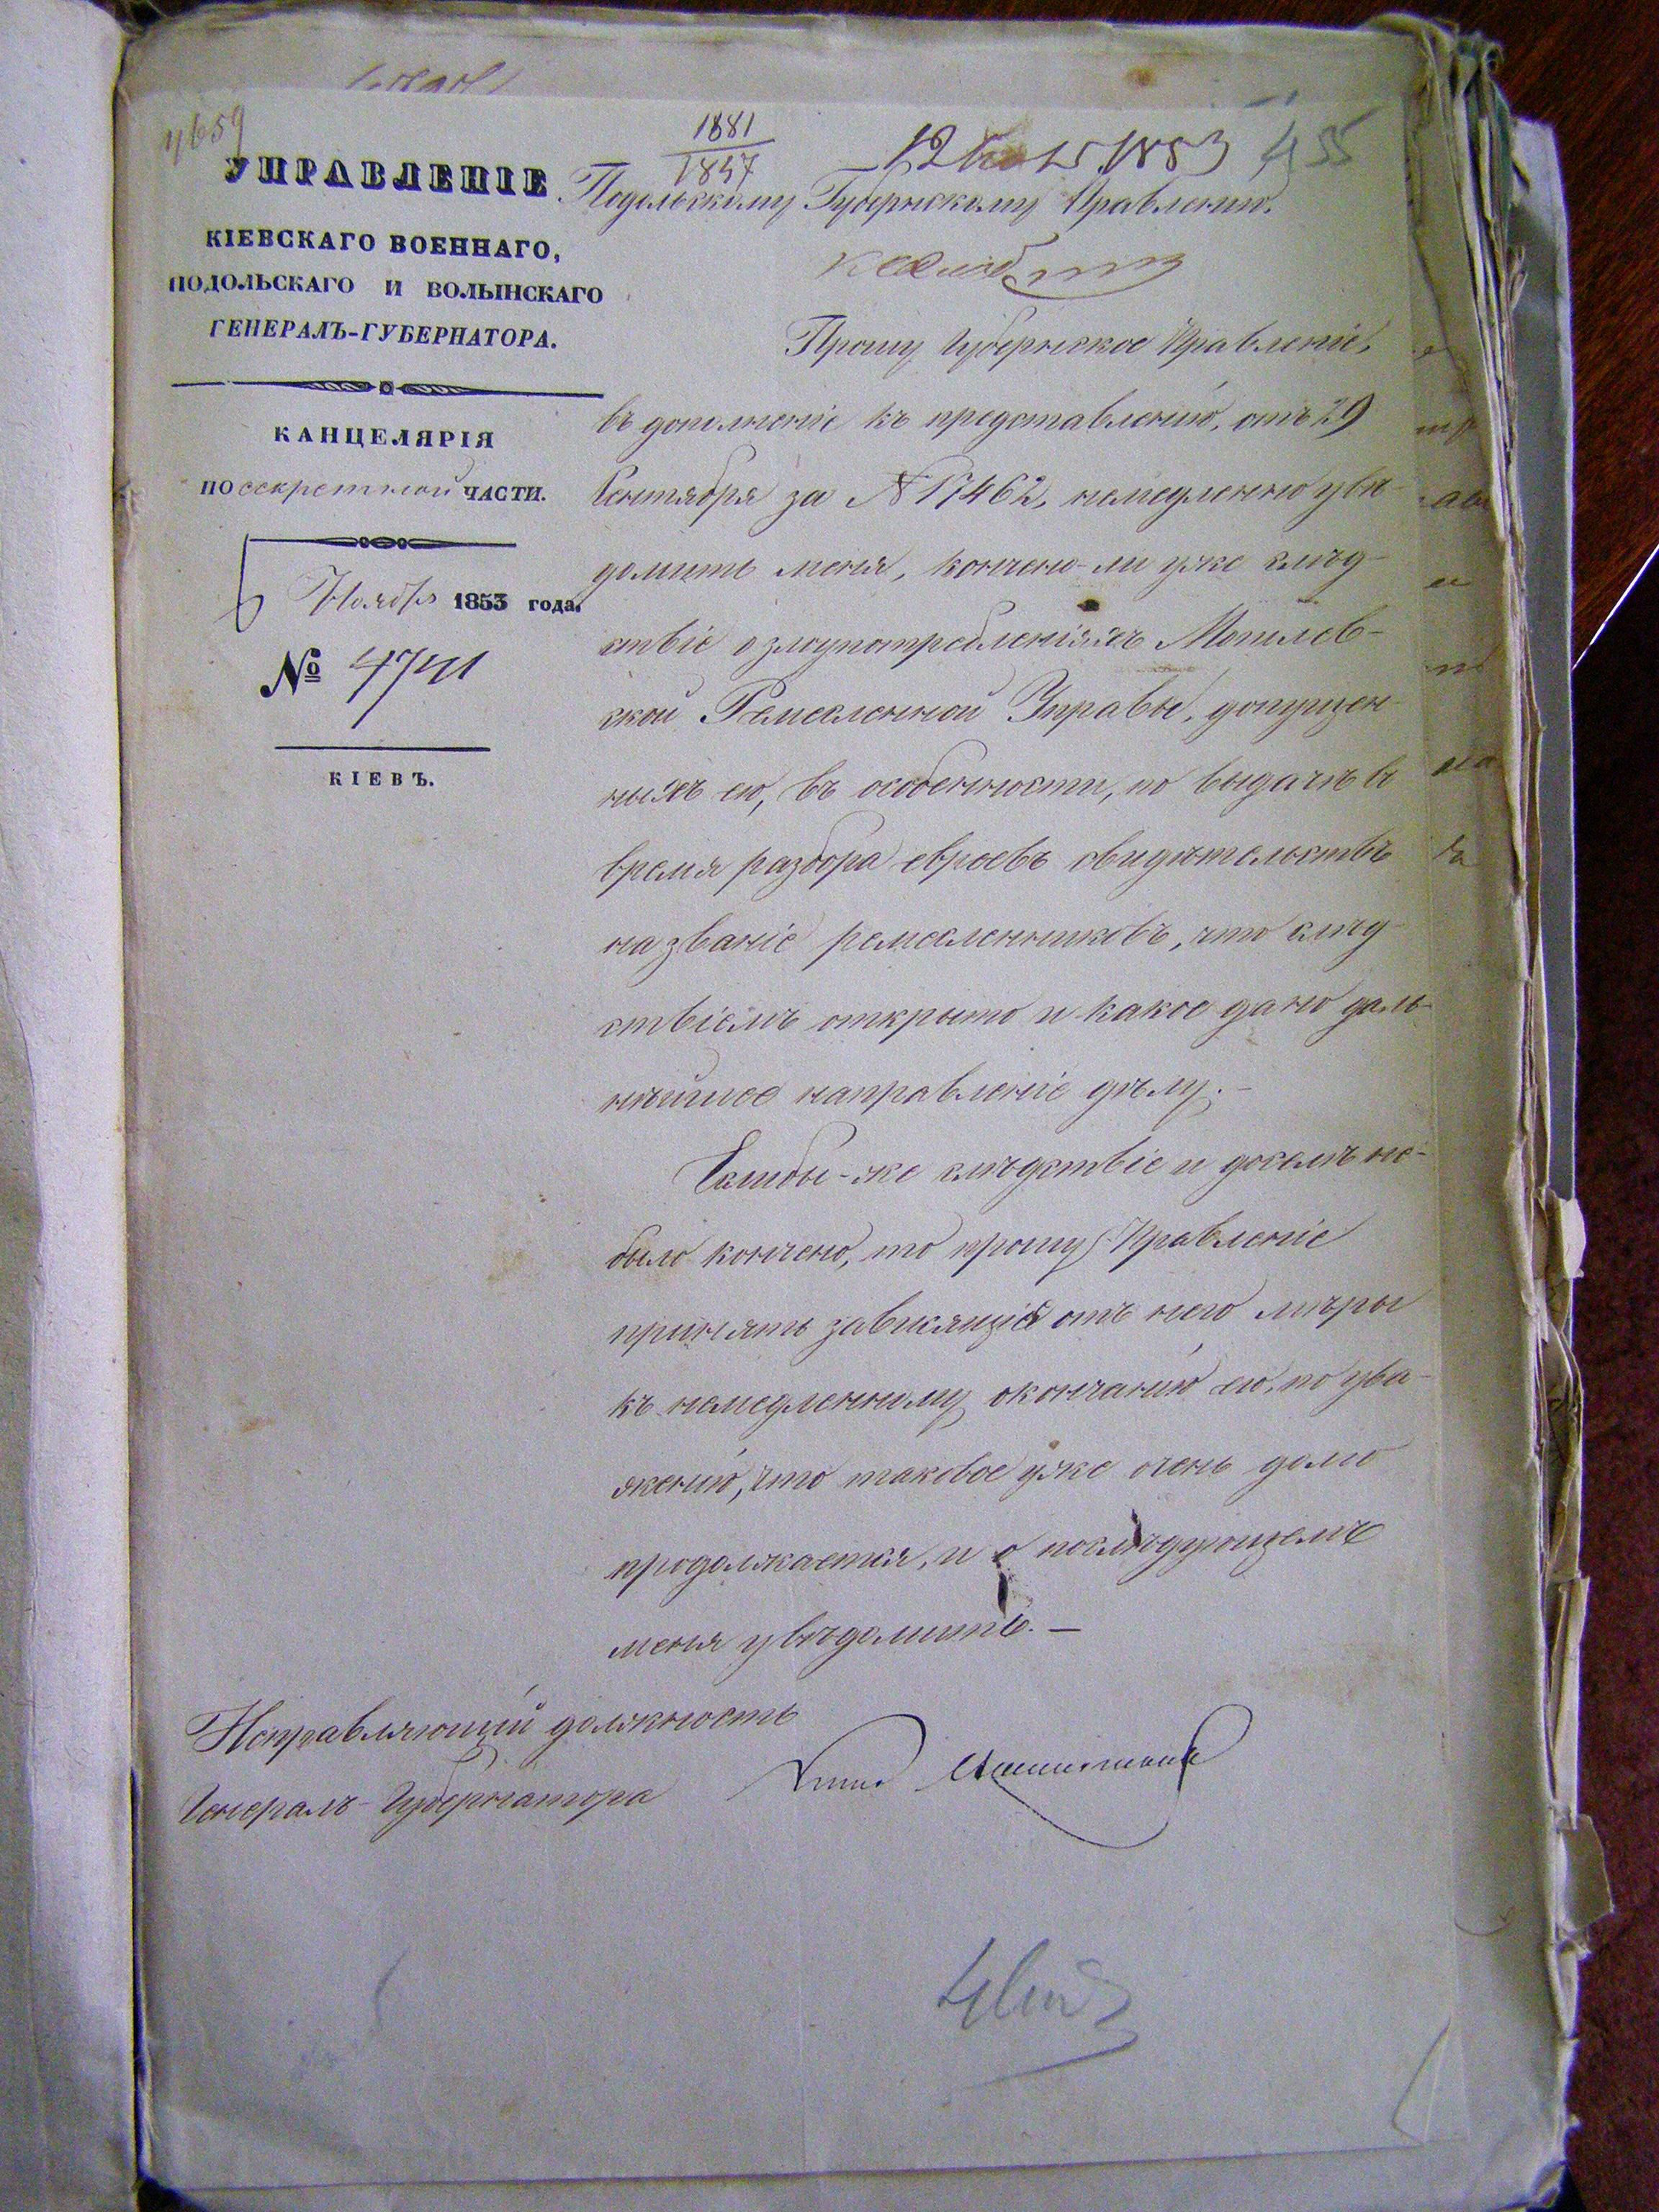 4659
УПРАВЛЕНІЕ
КІЕВСКАГО ВОЕННАГО,
ПОДОЛЬСКАГО И ВОЛЫНСКАГО
ГЕНЕРАЛЪ-ГУБЕРНАТОРА.
КАНЦЕЛЯРІЯ
ПО секретной ЧАСТИ.
6 Ноября 1853 года.
№ 4741
КІЕВЪ.
1881
1847
12 1853 455
Подольскому Губернскому Правленію.
Прошу Губернское Правленіе,
въ дополненіе къ представленію, отъ 29
Сентября за № 17462, немедленно увѣ-
домить меня, кончено-ли уже слѣд-
ствіе о злоупотребленіяхъ Могилев-
ской Ремесленной Управы, допущен-
ныхъ ею, въ особенности, по выдачѣ въ
время разбора евреевъ свидѣтельствъ
на званіе ремесленниковъ, что слѣд-
ствіемъ открыто и какое дано даль-
нѣйшее направленіе дѣлу.-
Еслибы-же слѣдствіе и доселѣ не-
было кончено, то прошу Правленіе
принять зависящія отъ него мѣры
къ немедленному окончанію его, по ува-
женію, что таковое уже очень долго
продолжается, и о послѣдующемъ
меня увѣдомить.—
Исправляющій должность
Генералъ-Губернатора